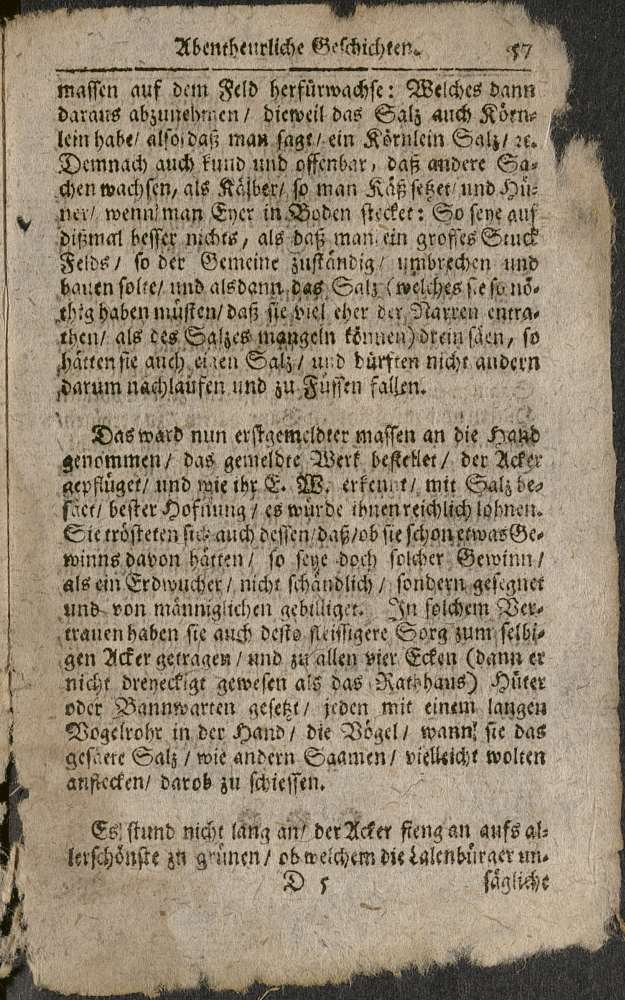 Abentheurliche Geschichten. 57
massen auf dem Feld herfürwachse: Welches dann
daraus abzunehmen / dieweil das Salz auch Körn-
lein habe / also, daß man sagt / ein Körnlein Salz / ꝛc.
Demnach auch kund und offenbar, daß andere Sa-
chen wachsen, als Kälber / so man Käß setzet / und Hü-
ner / wenn man Eyer in Boden stecket: So seye auf
dißmal besser nichts, als daß man ein grosses Stuck
Felds / so der Gemeine zuständig / umbrechen und
bauen solte / und alsdann das Salz (welches sie so nö-
thig haben müsten / daß sie viel eher der Narren entra-
then / als des Salzes mangeln können) drein säen, so
hätten sie auch eigen Salz / und dürften nicht andern
darum nachlaufen und zu Füssen fallen.
Das ward nun erstgemeldter massen an die Hand
genommen / das gemeldte Werk bestellet / der Acker
gepflüget / und wie ihr E. W. erkennt / mit Salz be-
säet / bester Hofnung / es würde ihnen reichlich lohnen.
Sie trösteten sich auch dessen / daß / ob sie schon etwas Ge-
winns davon hätten / so seye doch solcher Gewinn /
als ein Erdwucher / nicht schändlich / sondern gesegnet
und von männiglichen gebilliget. In solchem Ver-
trauen haben sie auch desto fleissigere Sorg zum selbi-
gen Acker getragen / und zu allen vier Ecken (dann er
nicht dreyeckigt gewesen als das Rathhaus) Hüter
oder Bannwarten gesetzt / jeden mit einem langen
Vogelrohr in der Hand / die Vögel / wann sie das
gesäete Salz / wie andern Saamen / vielleicht wolten
anstecken / darob zu schiessen.
Es stund nicht lang an / der Acker fieng an aufs al-
lerschönste zu grünen / ob welchem die Lalenbürger un-
D 5 sägliche